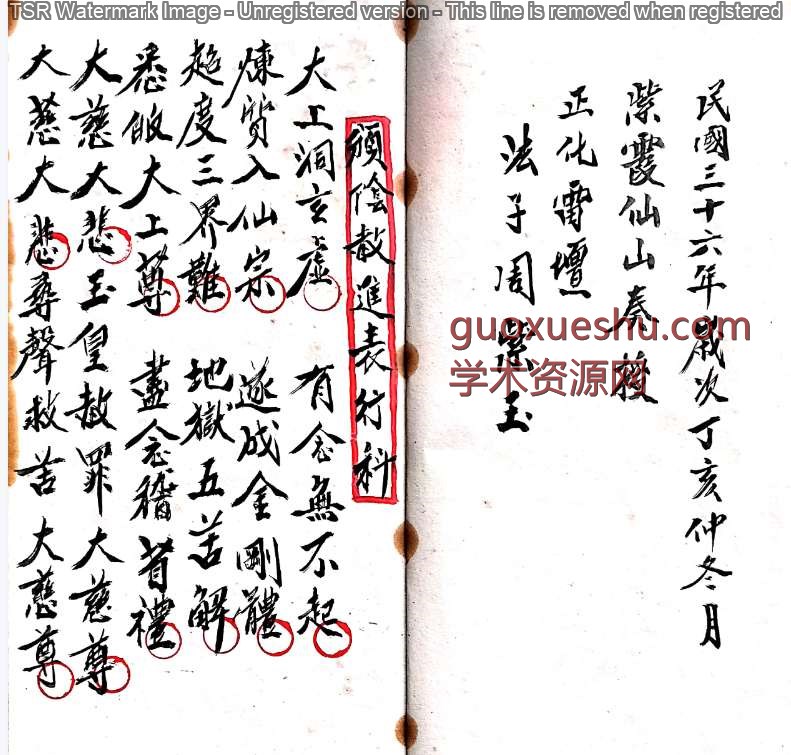 TSR Watermark Image - Unregistered version - This line is removed when registered
民國三十六年歲次丁亥仲冬月
紫霞仙山奏授
正化雷壇
法子周紫玉
guoxueshu.com
学术资源网
頒陰赦進表行科
大上洞玄虛 有念無不起
煉質入仙宗 遂成金剛體
超度三界難 地獄五苦解
悉皈大上尊 盡念稽首禮
大慈大悲玉皇赦罪大慈尊
大慈大悲尋聲救苦大慈尊